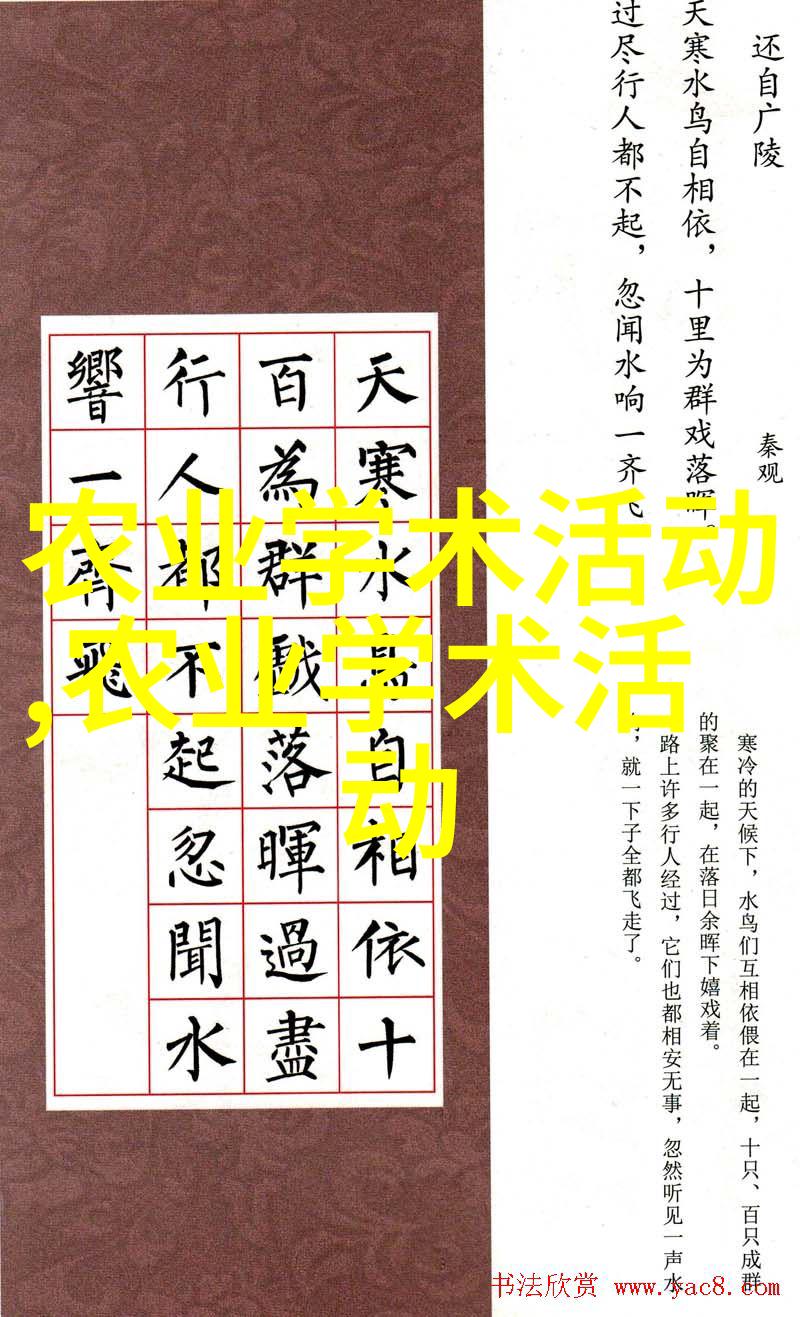 还自广陵
秦观
天寒水鸟自相依，十里为群戏落晖。
过尽行人都不起，忽闻水响一齐飞
天寒水鳥自相依十
百為群戲落暉過盡
行人都不起忽聞水
響一齊飛
农业学术活动
,农业学术活
动
寒冷的天候下，水鸟们互相依偎在一起，十只、百只成群
的聚在一起，在落日余晖下嬉戏着。
路上许多行人经过，它们也都相安无事，忽然听见一声水
，就一下子全都飞走了。
书法欣赏 www.yac8.com